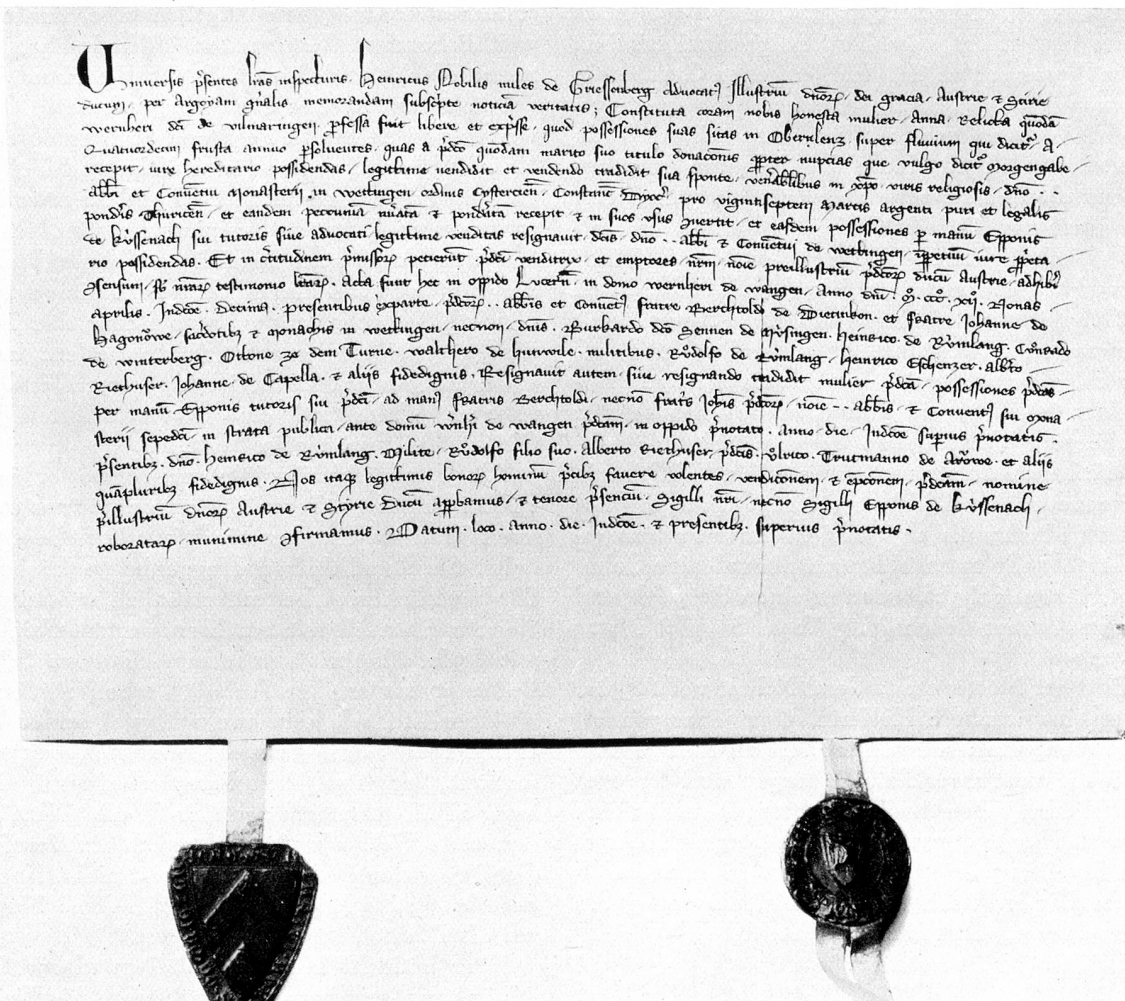 Universis p̄sentes lr̄as inspecturis. Heinricus Nobilis miles de Griessenberg Advocatꝯ Illustriū dn̄oꝝ. dei gracia. Austrie ⁊ Stirie
ducum. per Argoyam gn̄alis. memorandam subsc̄pte noticiā veritatis; Constituta coram nobis honesta mulier. Anna. Relicta quōdā
wernheri dc̄i de vilmaringen. p̄fessa fuit libere et exp̄sse. quod possessiones suas sitas in Oberᵉnlenz super fluvium qui dicitᵘ A.
Quatuordecim frusta annuo p̄soluentes. quas a p̄dc̄o quōdam marito suo titulo donac̄onis ꝓpter nupcias que vulgo dicitᵘ Morgengabe
recepit. iure hereditario possidendas. legittime vendidit et vendendo tradidit sua sponte. ven̄abilibus in xp̄o. viris religiosis. dn̄o . .
abb̄i et Convētui Monasterii. in wettingen. ordinis Cystercien̄. Constanciēn dyoc̄. pro vigintiseptem Marcis argenti puri et legalis
pondīs Thuricēn. et eandem pecuniā nūatā ⁊ pondātā recepit ⁊ in suos vsus ꝯuertit. et easdem possessiones ꝑ manū Epponis
de kv̊ssenach sui tutoris siue advocati legittime venditas resignauit. dc̄is. dn̄o . . abb̄i ⁊ Convētui de wettingen. ꝑpetuū iure ꝓprieta
rio possidendas. Et in c̄titudinem p̄missoꝝ petierūt p̄dc̄i venditrix. et emptores. nr̄m. noīe preillustriū p̄dc̄oꝝ ducū Austrie. adhibi
ꝯsensum. ⁊ nr̄arꝝ testimonio lr̄arꝝ. Acta sunt hec in oppido Lvcern̄. in domo wernheri de wangen. Anno dn̄i. M̊. ccc̊. xij̊. Nonas
aprilis. Indc̄oe. Decima. presentibus exparte p̄dc̄oꝝ. . abb̄is et Convētꝯ fratre Berchtoldo de Dietinkon. et fratre Johanne de
Hagonŏwe. sac̄dotibꝫ ⁊ Monachis in wettingen. necnon. dn̄is. Burkardo dc̄o Sennen de Mv̊singen. Heinrico. de Rv̊mlang. Cv̊nrado
de winterberg. Ottone ze dem Turne. walthero de hunwile. militibus. Rv̊dolfo de Rv̊mlang. Heinrico Eschenzer. alb̄to
Riethuser. Johanne. de Capella. ⁊ aliis fidedignis. Resignauit autem. siue resignando tradidit mulier p̄dc̄a. possessiones p̄dc̄as
per manū. Epponis tutoris sui p̄dc̄i. ad manꝯ fratris Berchtoldi. necnō fratis Joh̄is p̄dc̄oꝝ. noīe . . abb̄is. ⁊ Conventꝯ sui Mona
sterii sepedc̄i. in strata publica. ante domū wn̄h̄i de wangen p̄dc̄am. in oppido p̄notato. Anno. die. Indc̄oe supius p̄notatis.
p̄sentibꝫ. dn̄o. Heinrico de Rv̊mlang. Milite. Rv̊dolfo filio suo. Alberto Riethuser. p̄dc̄is. v̊lrico. Trutmanno de Arŏwe. et aliis
quāpluribꝫ fidedignis. Nos itaqꝫ legitimis bonoꝝ hominū p̄cibꝫ fauere volentes. vendic̄onem. ⁊ epc̄onem. p̄dc̄am. nomine
p̄illustriū dn̄oꝝ Austrie ⁊ Styrie Ducū apꝓbamus. ⁊ tenore p̄senciū. Sigilli nr̄i. necnō Sigilli Epponis de kv̊ssenach.
roboratarꝝ. munimine ꝯfirmamus. Datum. loco. anno. die. Indc̄oe. ⁊ presentibꝫ. superius p̄notatis.